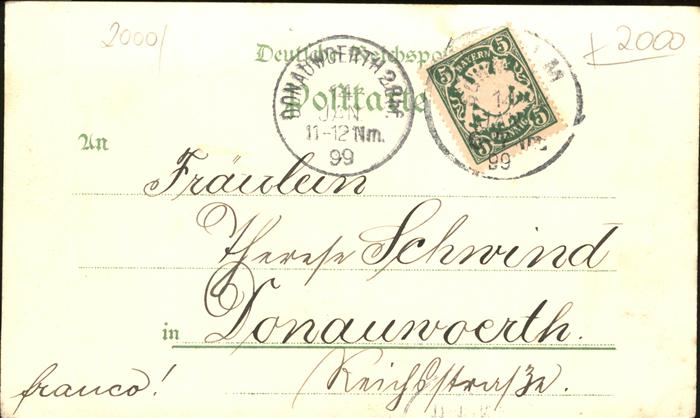 2000/
+ 2000
Deutsche Reichspost
Postkarte
DONAUWOERTH 2.Bhf.
14
JAN
11-12 Nm.
99
5 BAYERN 5
5 PFENNIG 5
14
99
An
Fräulein
Therese Schwind
in Donauwoerth.
franco! Reichsstraße.